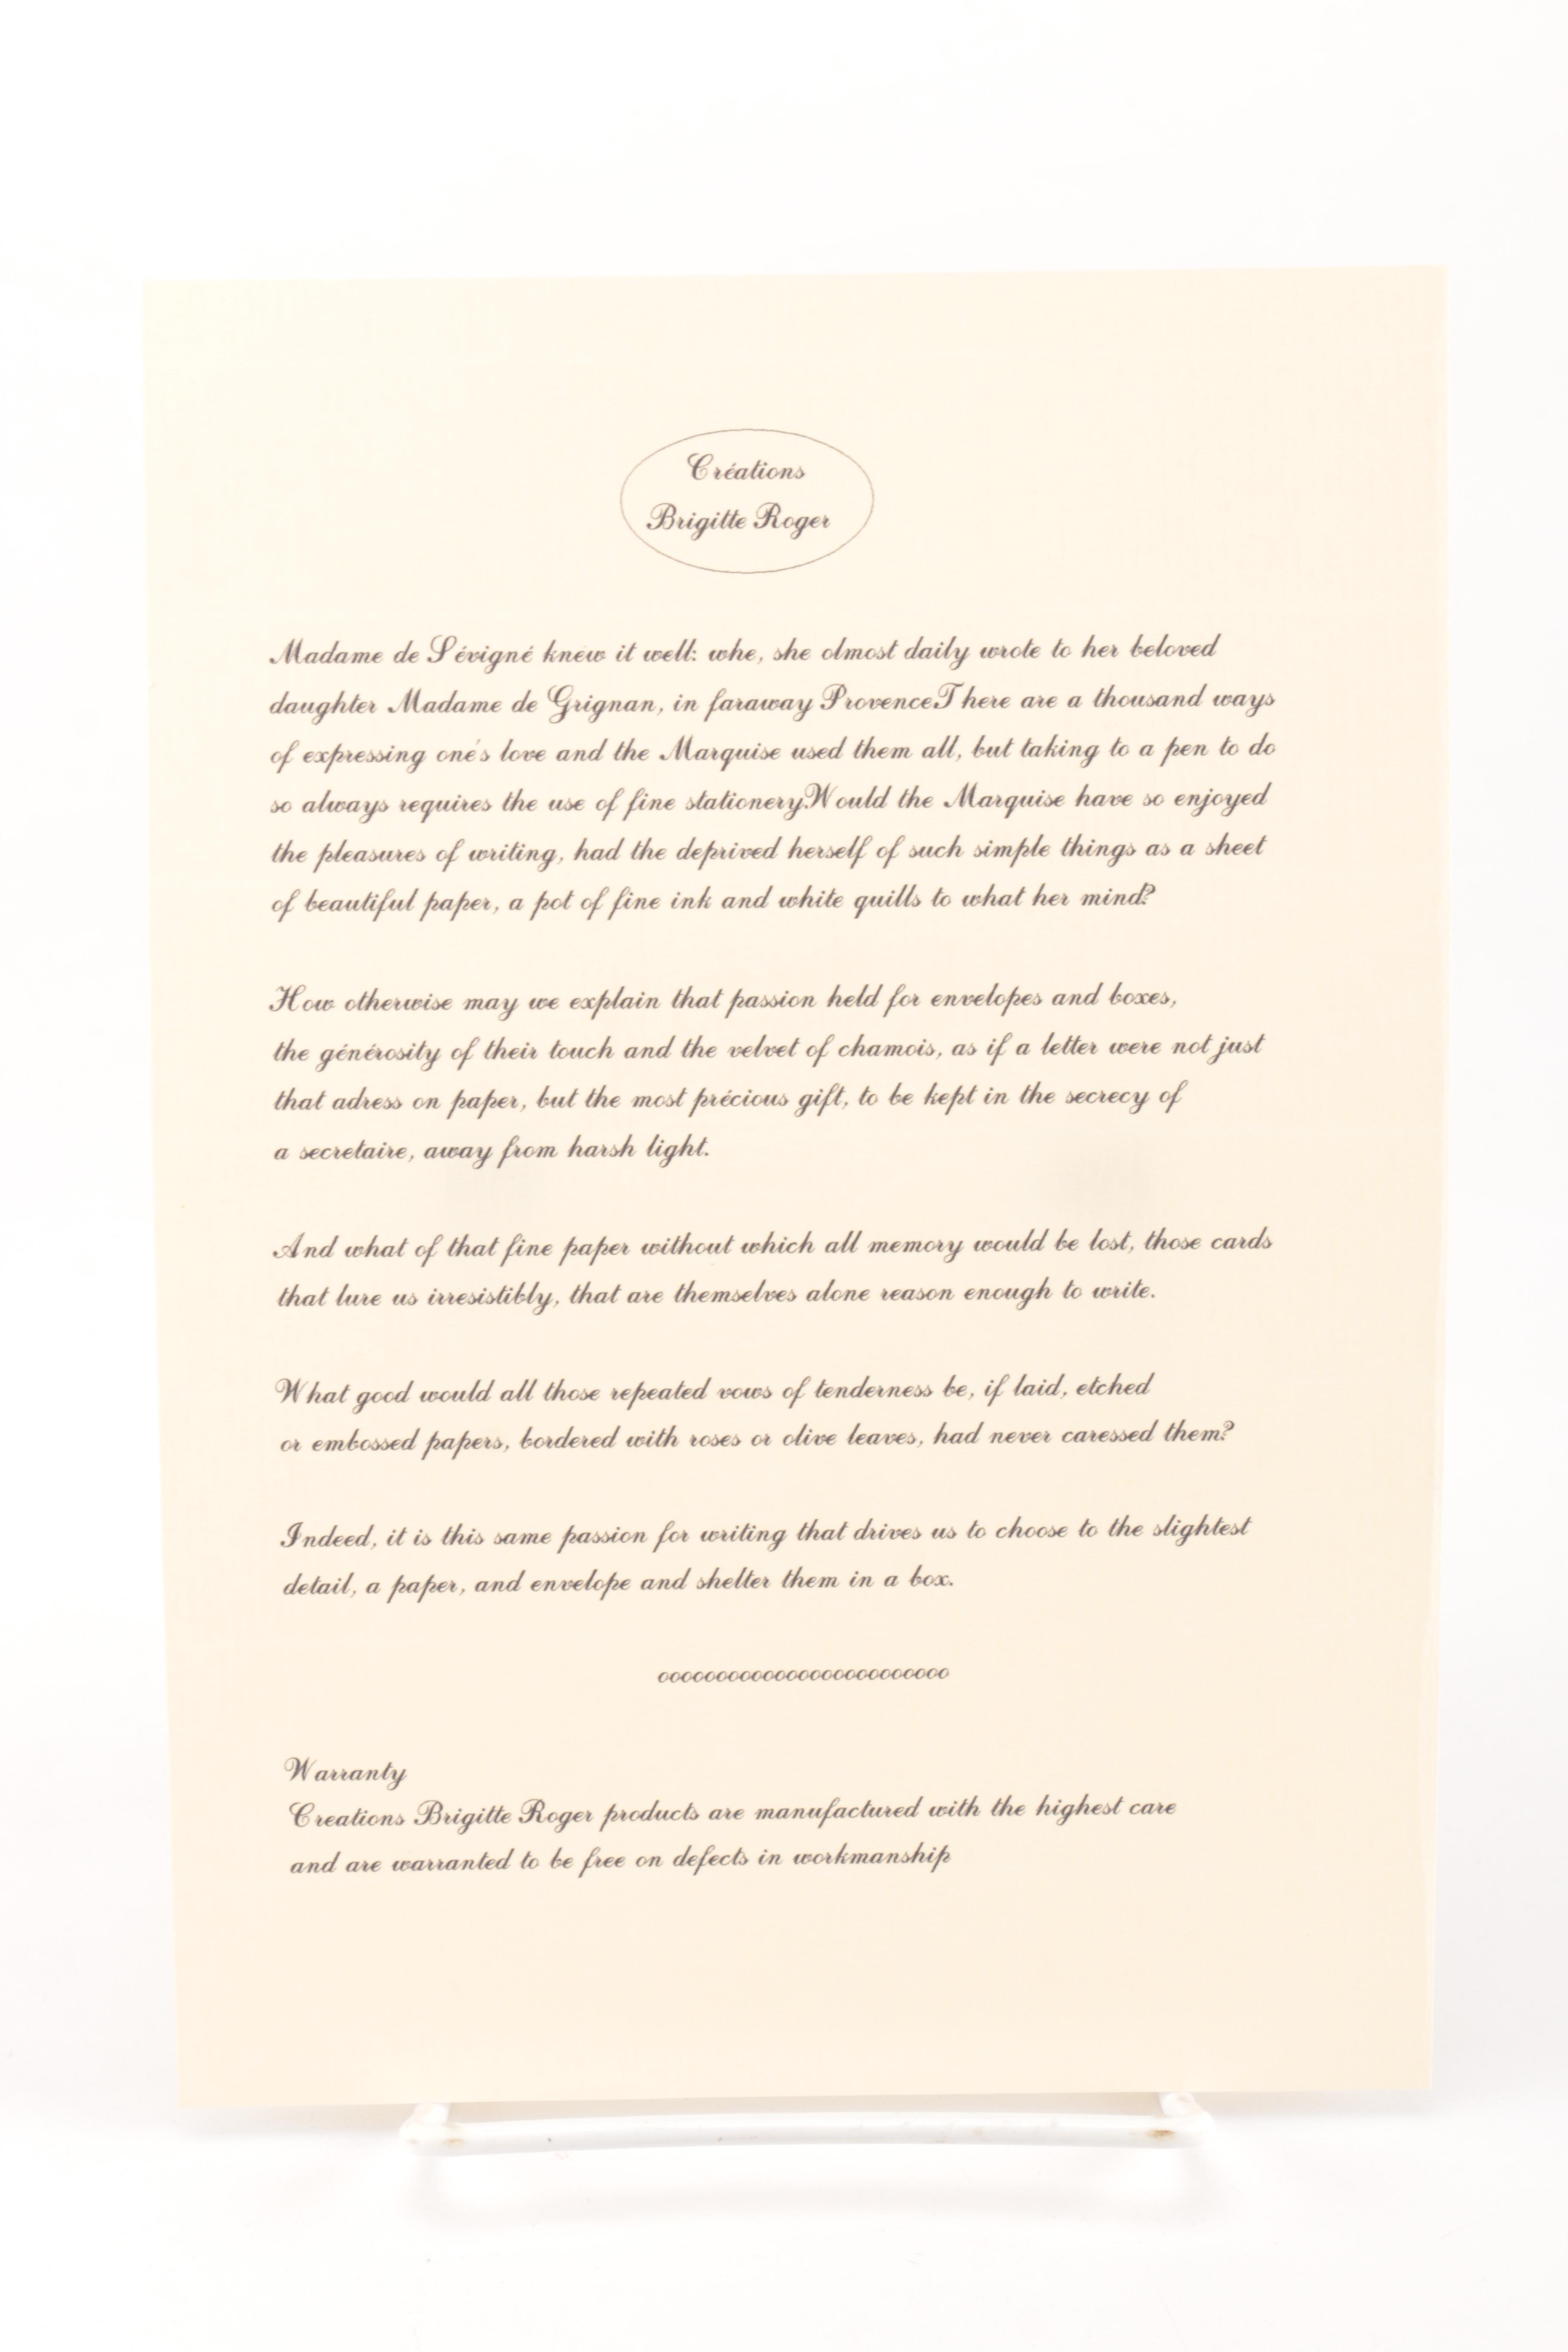 Créations
Brigitte Roger
Madame de Sévigné knew it well: whe, she olmost daily wrote to her beloved
daughter Madame de Grignan, in faraway ProvenceThere are a thousand ways
of expressing one's love and the Marquise used them all, but taking to a pen to do
so always requires the use of fine stationery.Would the Marquise have so enjoyed
the pleasures of writing, had the deprived herself of such simple things as a sheet
of beautiful paper, a pot of fine ink and white quills to what her mind?
How otherwise may we explain that passion held for envelopes and boxes,
the générosity of their touch and the velvet of chamois, as if a letter were not just
that adress on paper, but the most précious gift, to be kept in the secrecy of
a secretaire, away from harsh light.
And what of that fine paper without which all memory would be lost, those cards
that lure us irresistibly, that are themselves alone reason enough to write.
What good would all those repeated vows of tenderness be, if laid, etched
or embossed papers, bordered with roses or olive leaves, had never caressed them?
Indeed, it is this same passion for writing that drives us to choose to the slightest
detail, a paper, and envelope and shelter them in a box.
ooooooooooooooooooooooooo
Warranty
Creations Brigitte Roger products are manufactured with the highest care
and are warranted to be free on defects in workmanship